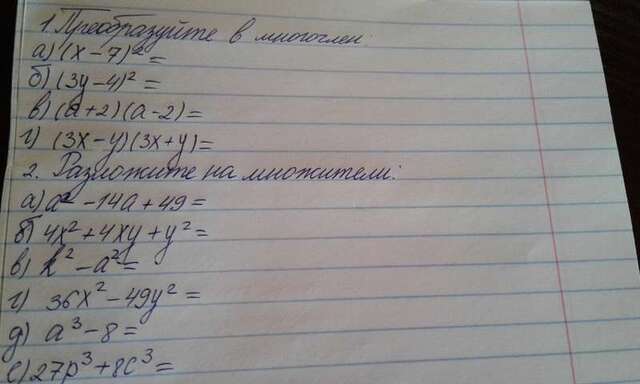 1 Преобразуйте в многочлен:
а) (x-7)² =
б) (3y-4)² =
в) (a+2)(a-2)=
г) (3x-y)(3x+y)=
2. Разложите на множители:
а) a² -14a+49=
б) 4x²+4xy+y²=
в) k²-a²=
г) 36x²-49y²=
д) a³-8=
е) 27p³+8c³=